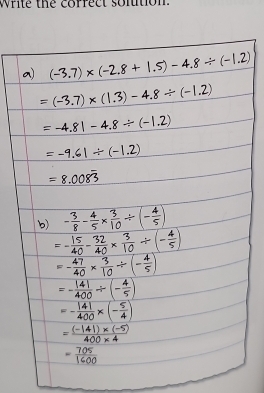 Write the correct solution.
a) (-3.7) × (-2.8 + 1.5) - 4.8 ÷ (-1.2)
= (-3.7) × (1.3) - 4.8 ÷ (-1.2)
= -4.81 - 4.8 ÷ (-1.2)
= -9.61 ÷ (-1.2)
= 8.0083̄
b) -3/8 - 4/5 × 3/10 ÷ (-4/5)
= -15/40 - 32/40 × 3/10 ÷ (-4/5)
= -47/40 × 3/10 ÷ (-4/5)
= -141/400 ÷ (-4/5)
= -141/400 × (-5/4)
= (-141) × (-5)/400 × 4
= 705/1600